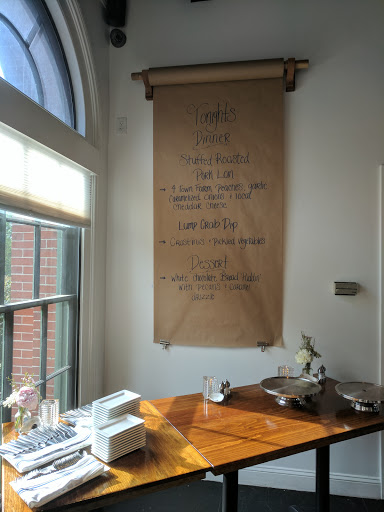 Tonights
Dinner
Stuffed Roasted
Pork Loin
→ 9 Town Farm, peaches, garlic
Caramelized Onions + local
cheddar cheese
Lump Crab Dip
→ Crostinis + Pickled Vegetables
Dessert
→ White chocolate Bread Pudding
with Pecans +
drizzle